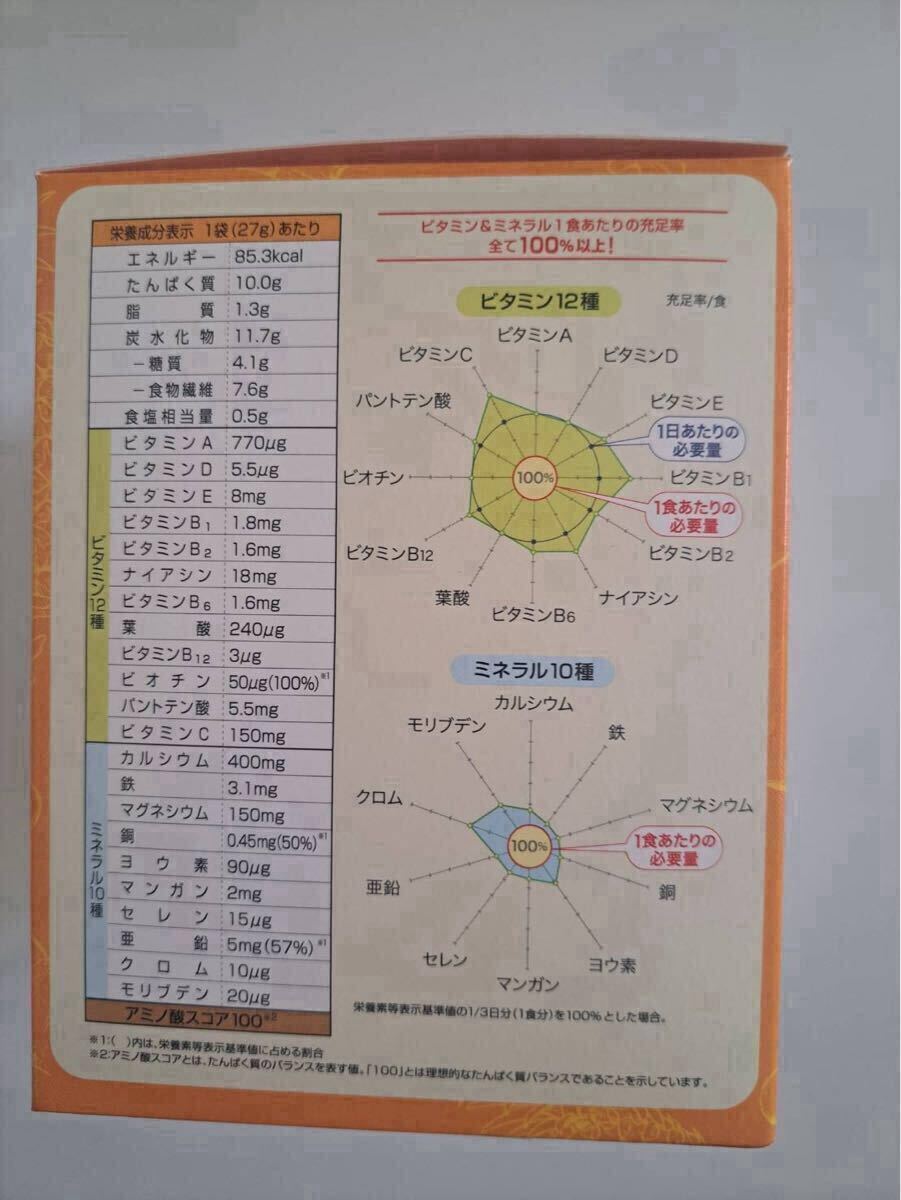 栄養成分表示 1袋(27g)あたり
エネルギー 85.3kcal
たんぱく質 10.0g
脂質 1.3g
炭水化物 11.7g
－糖質 4.1g
－食物繊維 7.6g
食塩相当量 0.5g
ビタミン12種
ビタミンA 770μg
ビタミンD 5.5μg
ビタミンE 8mg
ビタミンB1 1.8mg
ビタミンB2 1.6mg
ナイアシン 18mg
ビタミンB6 1.6mg
葉酸 240μg
ビタミンB12 3μg
ビオチン 50μg(100%)※1
パントテン酸 5.5mg
ビタミンC 150mg
ミネラル10種
カルシウム 400mg
鉄 3.1mg
マグネシウム 150mg
銅 0.45mg(50%)※1
ヨウ素 90μg
マンガン 2mg
セレン 15μg
亜鉛 5mg(57%)※1
クロム 10μg
モリブデン 20μg
アミノ酸スコア100※2
※1:( )内は、栄養素等表示基準値に占める割合
※2:アミノ酸スコアとは、たんぱく質のバランスを表す値。「100」とは理想的なたんぱく質バランスであることを示しています。
ビタミン&ミネラル1食あたりの充足率
全て100%以上!
ビタミン12種
充足率/食
ビタミンA
ビタミンC
ビタミンD
パントテン酸
ビタミンE
1日あたりの
必要量
ビオチン
100%
ビタミンB1
1食あたりの
必要量
ビタミンB12
ビタミンB2
葉酸
ナイアシン
ビタミンB6
ミネラル10種
カルシウム
モリブデン
鉄
クロム
マグネシウム
100%
1食あたりの
必要量
亜鉛
銅
セレン
ヨウ素
マンガン
栄養素等表示基準値の1/3日分(1食分)を100%とした場合。